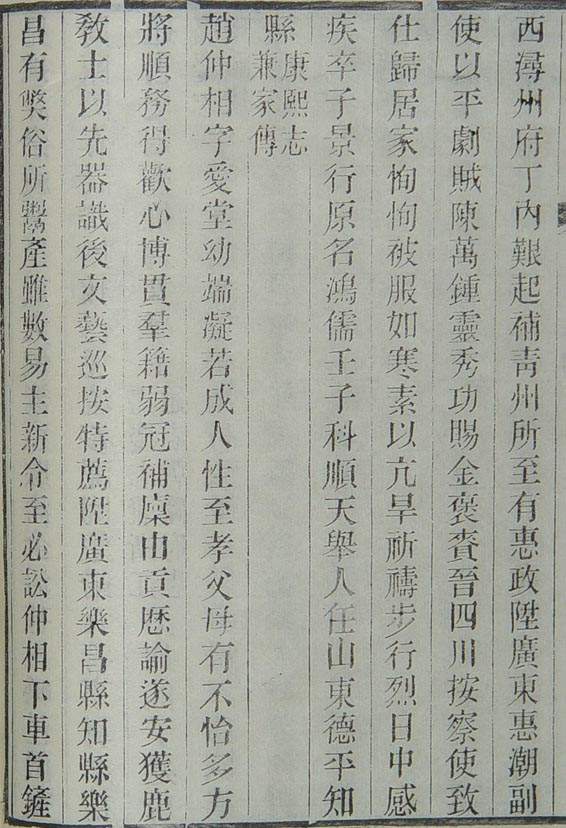 西潯州府丁內艱起補靑州所至有惠政陞廣東惠潮副
使以平劇賊陳萬鍾靈秀功賜金褒賚晉四川按察使致
仕歸居家恂恂被服如寒素以亢旱祈禱步行烈日中感
疾卒子景行原名鴻儒壬子科順天舉人任山東德平知
縣康熙志
兼家傳
趙仲相字愛堂幼端凝若成人性至孝父母有不怡多方
將順務得歡心博貫羣籍弱冠補廩由貢歷論遂安獲鹿
敎士以先器識後文藝巡按特薦陞廣東樂昌縣知縣樂
昌有獘俗所鬻產雖數易主新令至必訟仲相下車首鏟